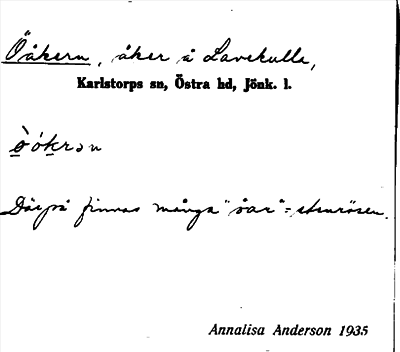 Öåkern, åker å Lavekulla,
Karlstorps sn, Östra hd, Jönk. l.
ò̱ óḵrən
Därpå finnas många "öar" = stenrösen.
Annalisa Anderson 1935